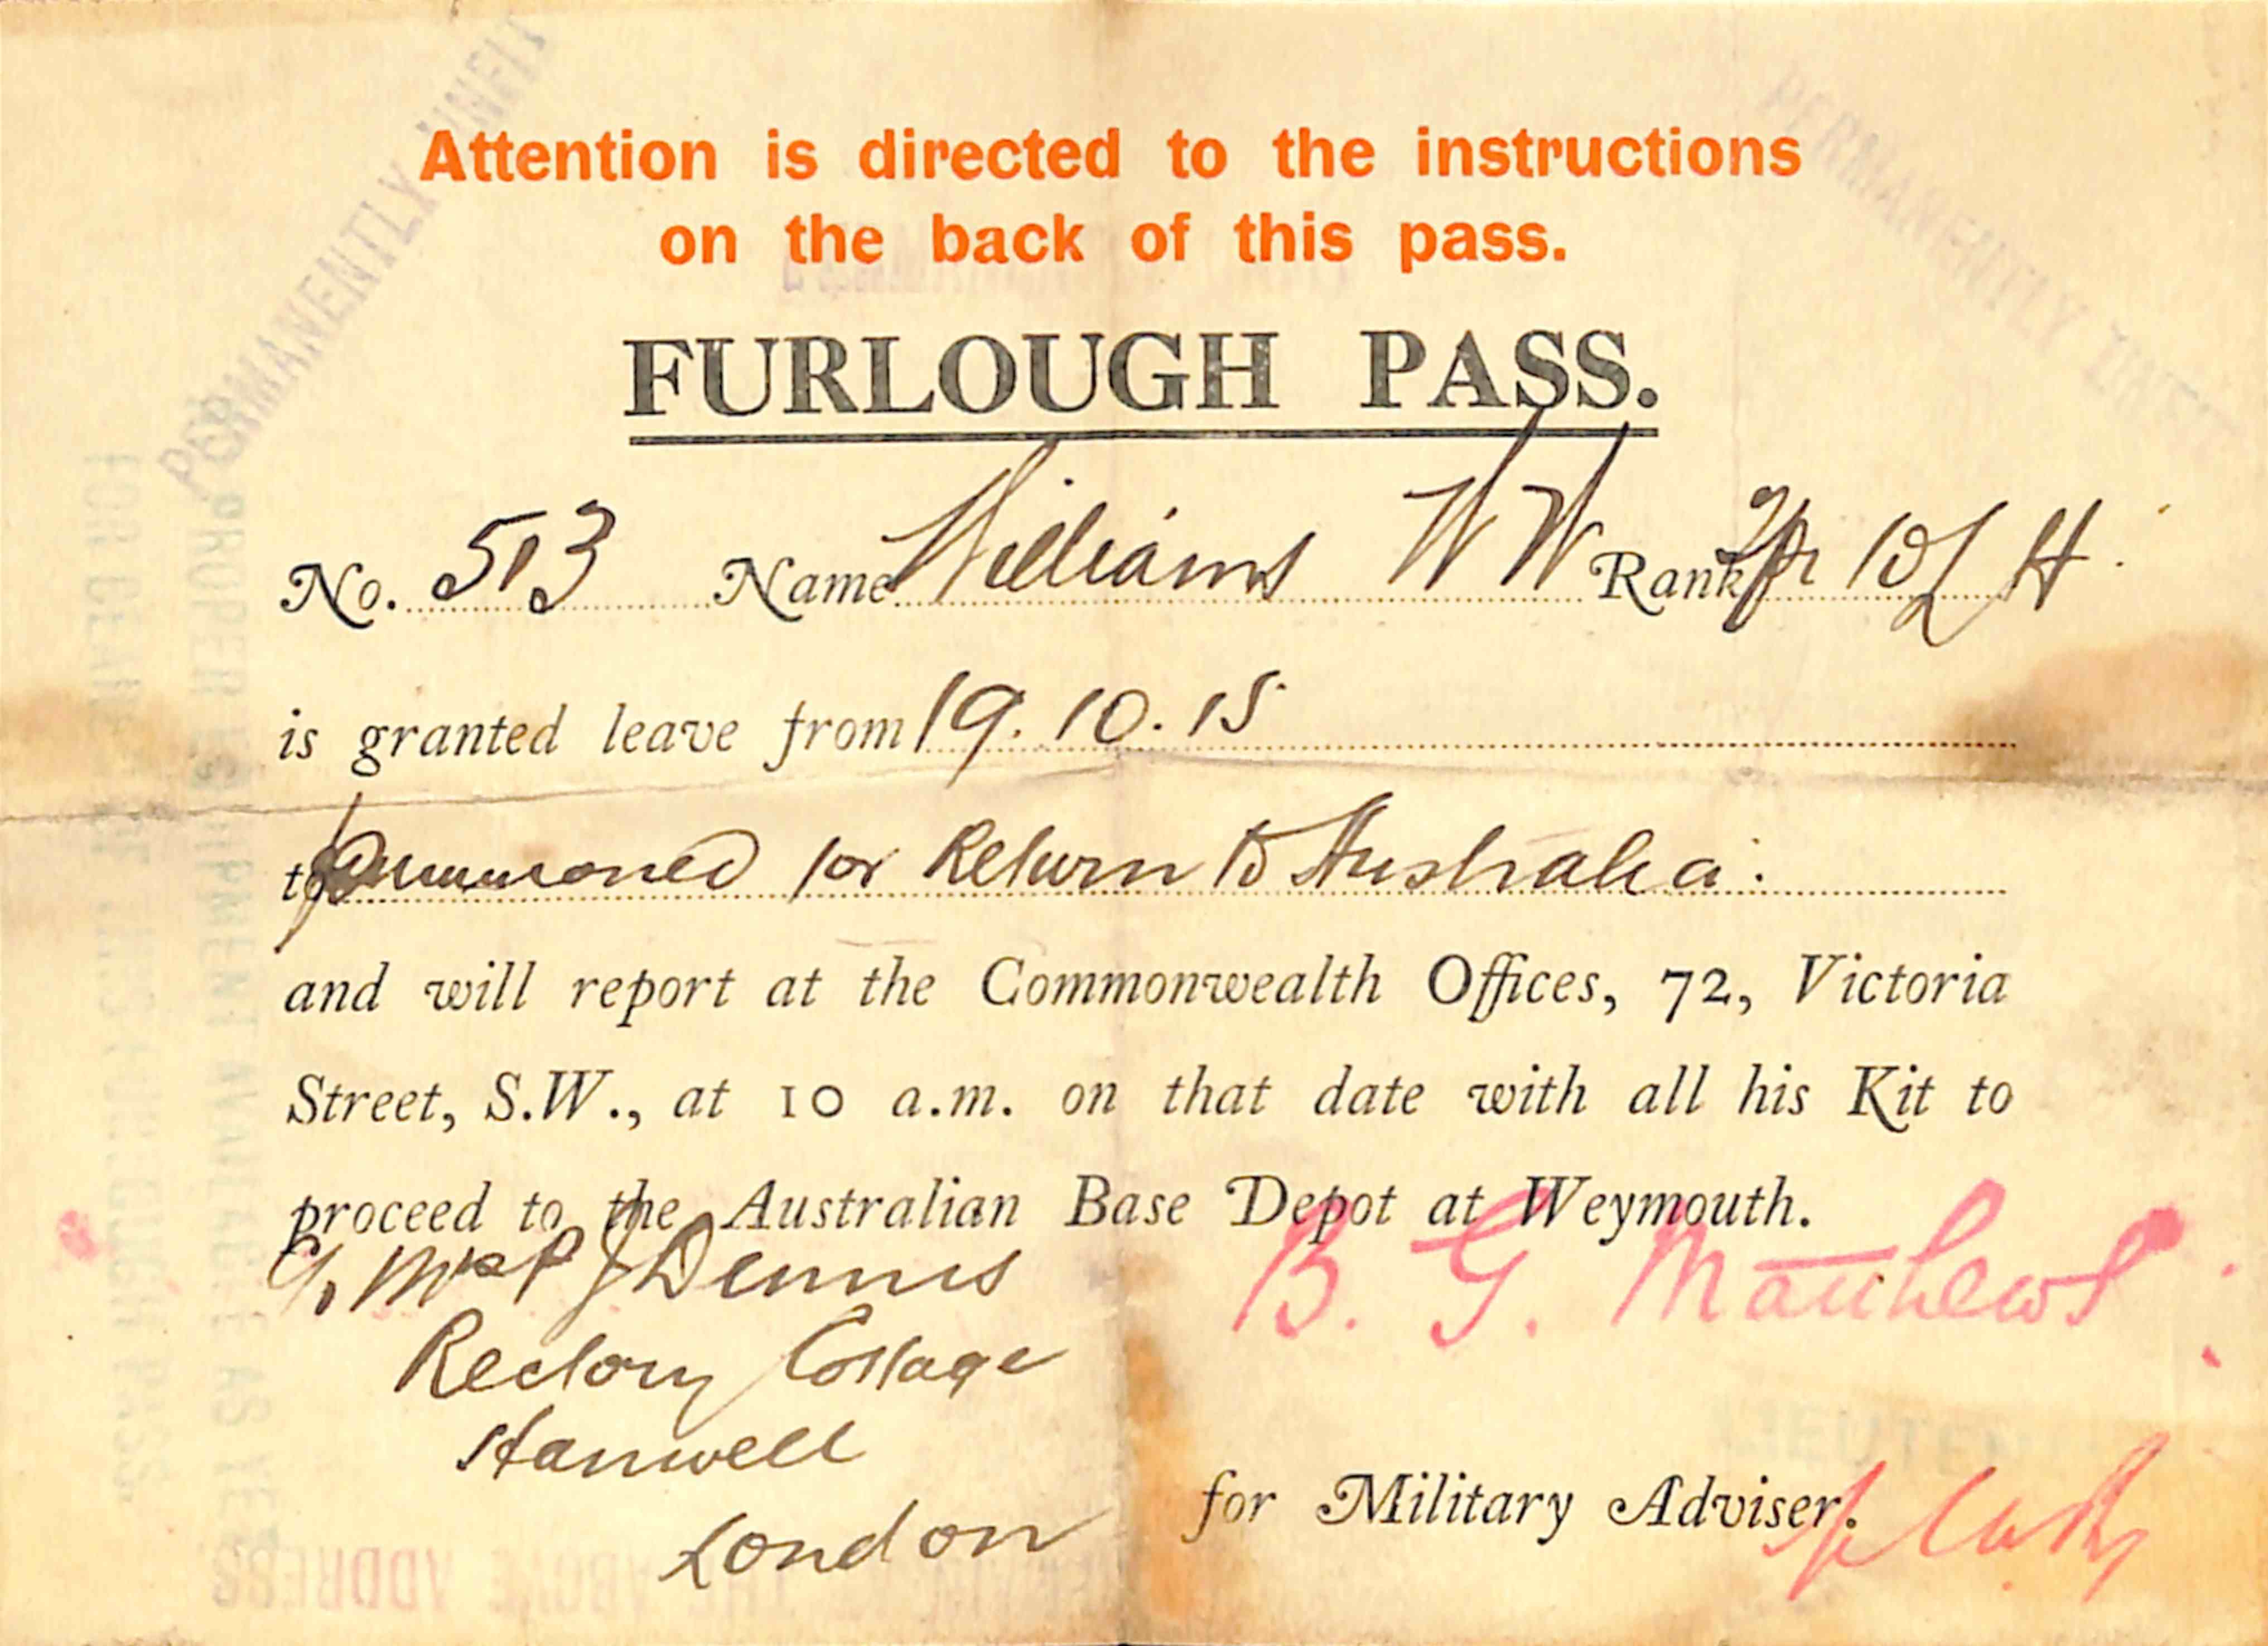 PERMANENTLY UNFIT
PERMANENTLY UNFIT
Attention is directed to the instructions
on the back of this pass.
FURLOUGH PASS.
No. 513 Name Williams W W Rank Tpr 10 L H.
is granted leave from 19.10.15
to Summoned for Return to Australia.
and will report at the Commonwealth Offices, 72, Victoria
Street, S.W., at 10 a.m. on that date with all his Kit to
proceed to the Australian Base Depot at Weymouth.
C/o Mrs P J Dennis
B. G. Matthews
Rectory Cottage
Hanwell
London
for Military Adviser.
PROPER EQUIPMENT AVAILABLE AS YET
ABOVE ADDRESS